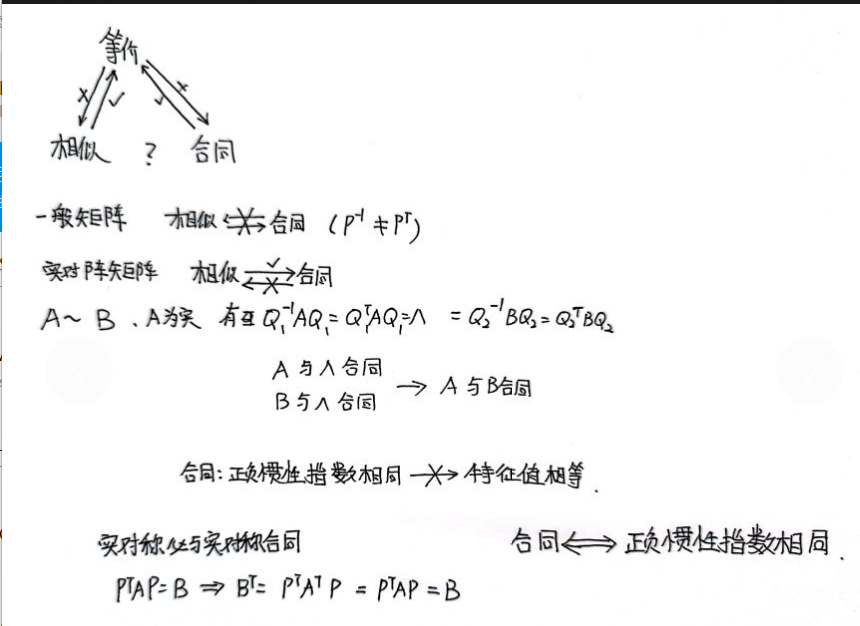 等价
× ✓ ✓ ×
相似 ? 合同
一般矩阵 相似 ⇎ 合同 (P⁻¹ ≠ Pᵀ)
实对阵矩阵 相似 ⇄ 合同
✓ ×
A ~ B 、A为实 有 Q₁⁻¹AQ₁ = QᵀAQ₁ = Λ = Q₂⁻¹BQ₂ = Q₂ᵀBQ₂
A 与 Λ 合同
B 与 Λ 合同 → A 与 B 合同
合同: 正负惯性指数相同 -×-> 特征值相等.
实对称必与实对称合同 合同 ⟺ 正负惯性指数相同.
PᵀAP = B ⇒ Bᵀ = PᵀAᵀP = PᵀAP = B